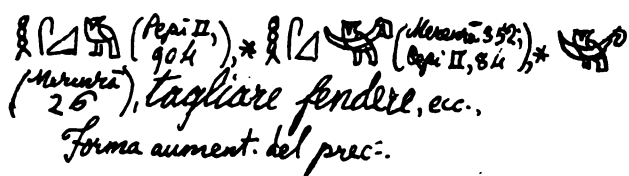 (Pepi II, 904), * (Merenrâ 352; Pepi II, 84), *
(Merenrâ 26), tagliare fendere, ecc.,
Forma aument. del prec=.